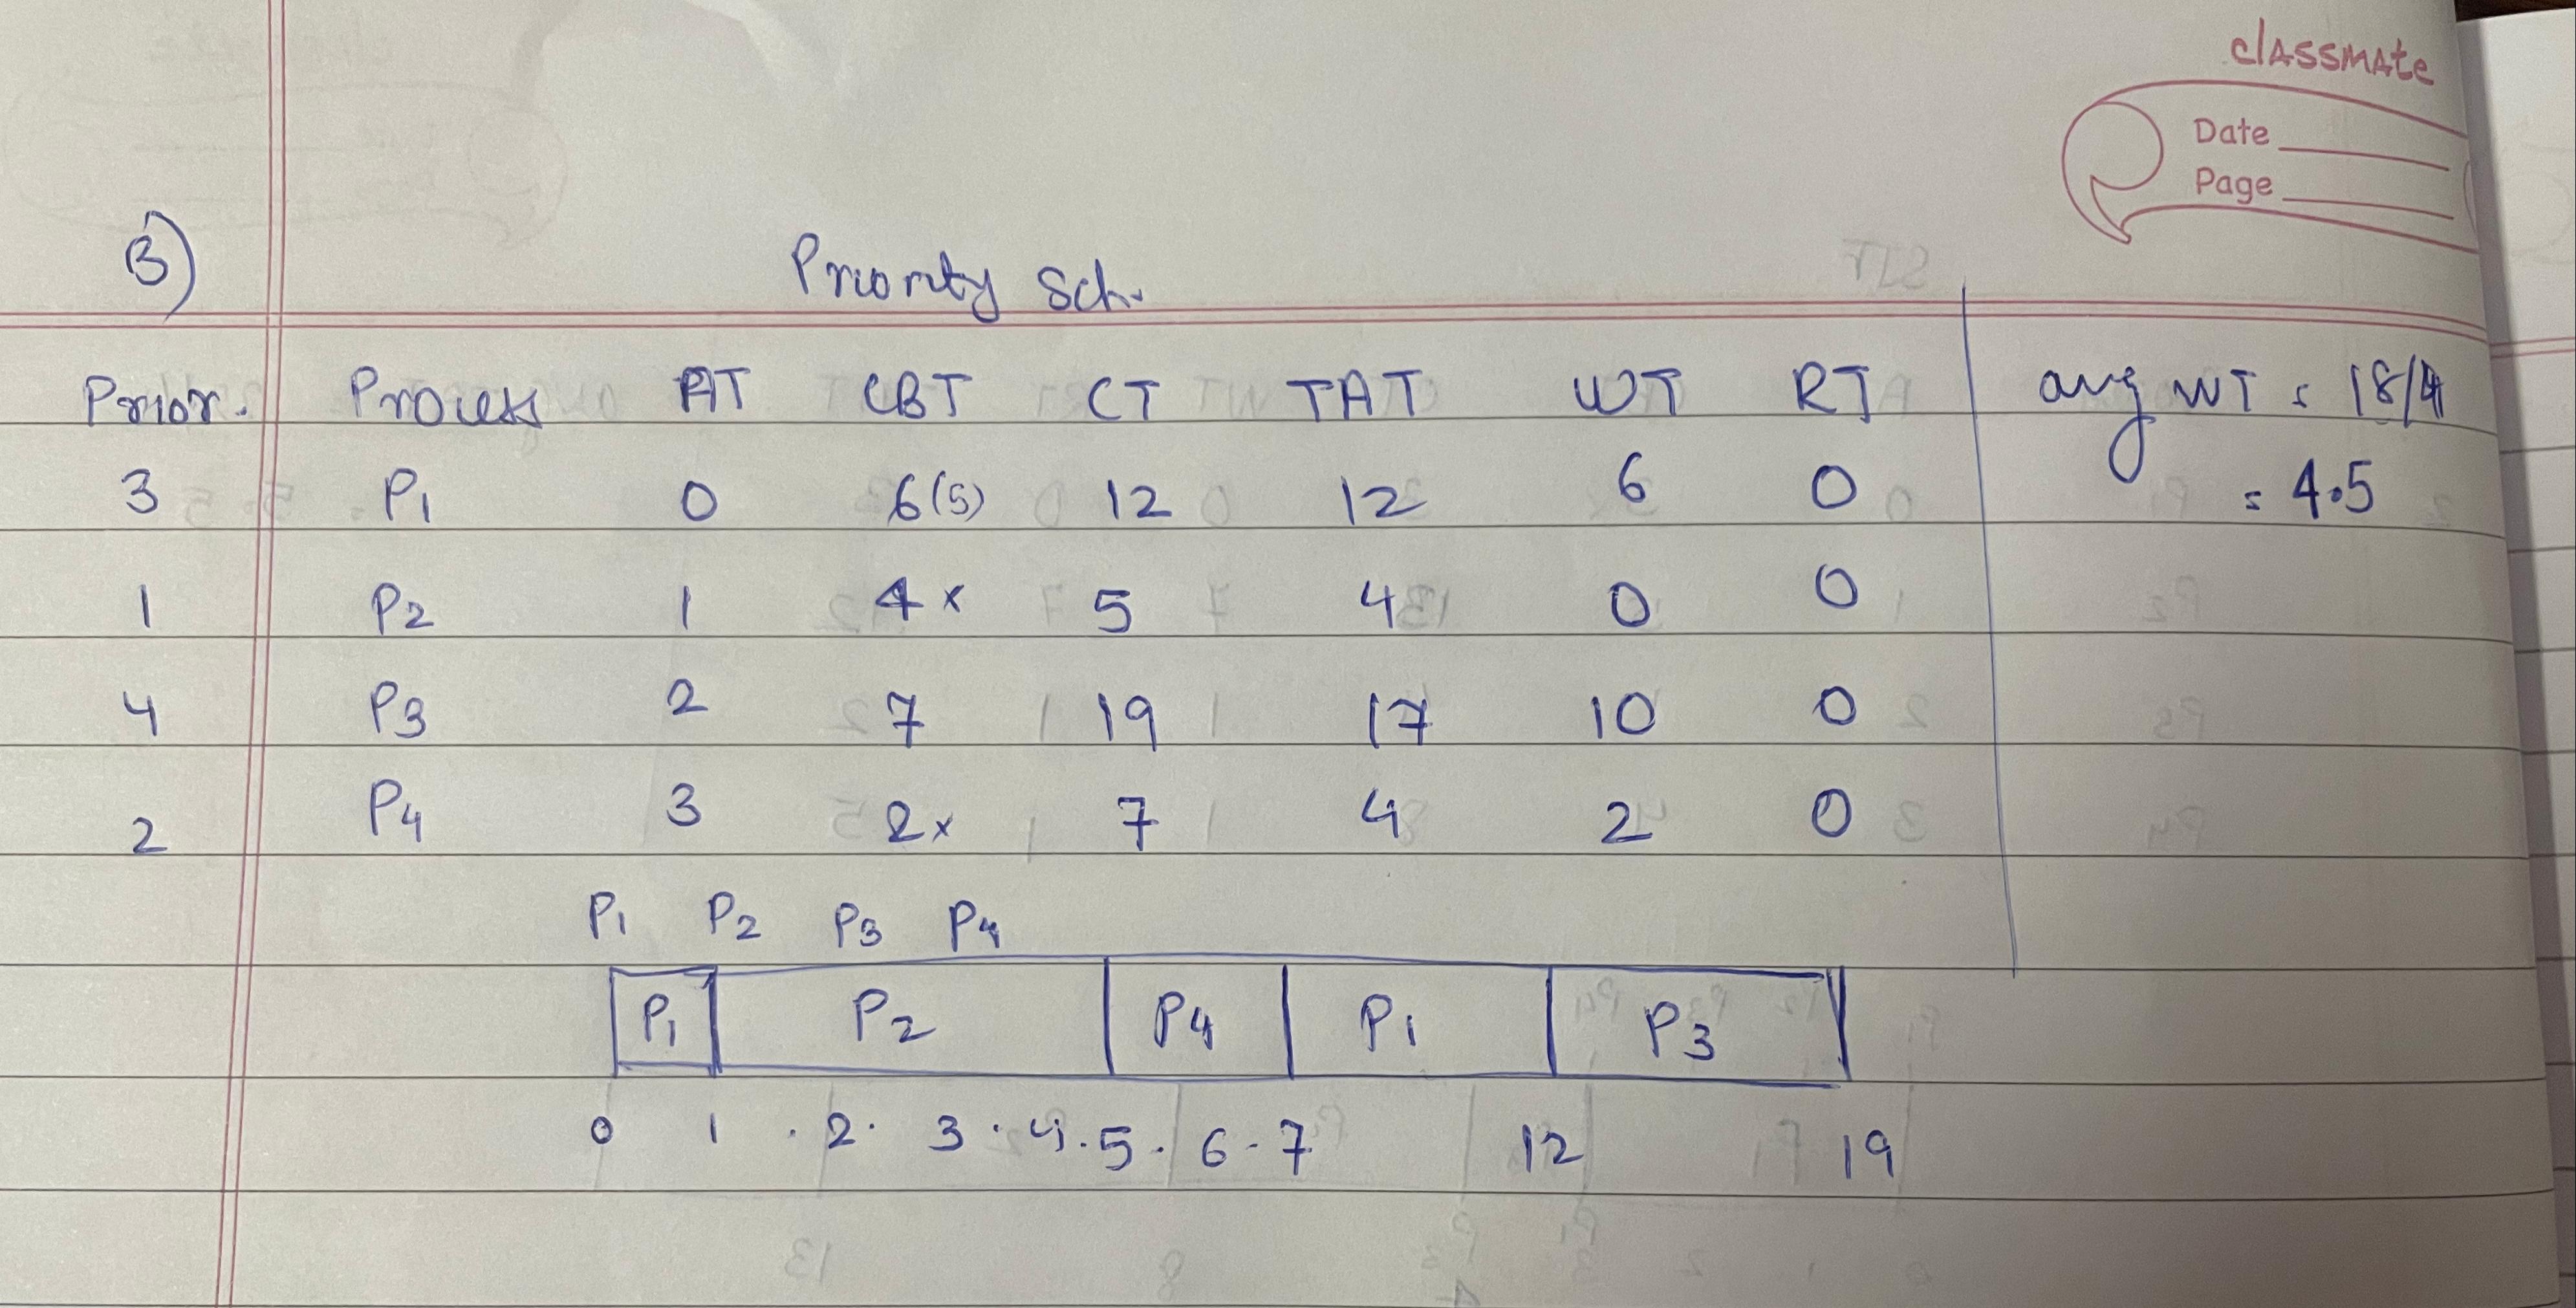 classmate
Date
Page
3) Priority Sch.
Prior. Process AT CBT CT TAT WT RT avg WT = 18/4
3 P1 0 6(5) 12 12 6 0 = 4.5
1 P2 1 4x 5 4 0 0
4 P3 2 7 19 17 10 0
2 P4 3 2x 7 4 2 0
P1 P2 P3 P4
P1 P2 P4 P1 P3
0 1 . 2 . 3 . 4 . 5 . 6 - 7 12 19